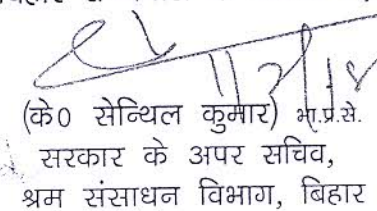 (के0 सेन्थिल कुमार) भा.प्र.से.
सरकार के अपर सचिव,
श्रम संसाधन विभाग, बिहार